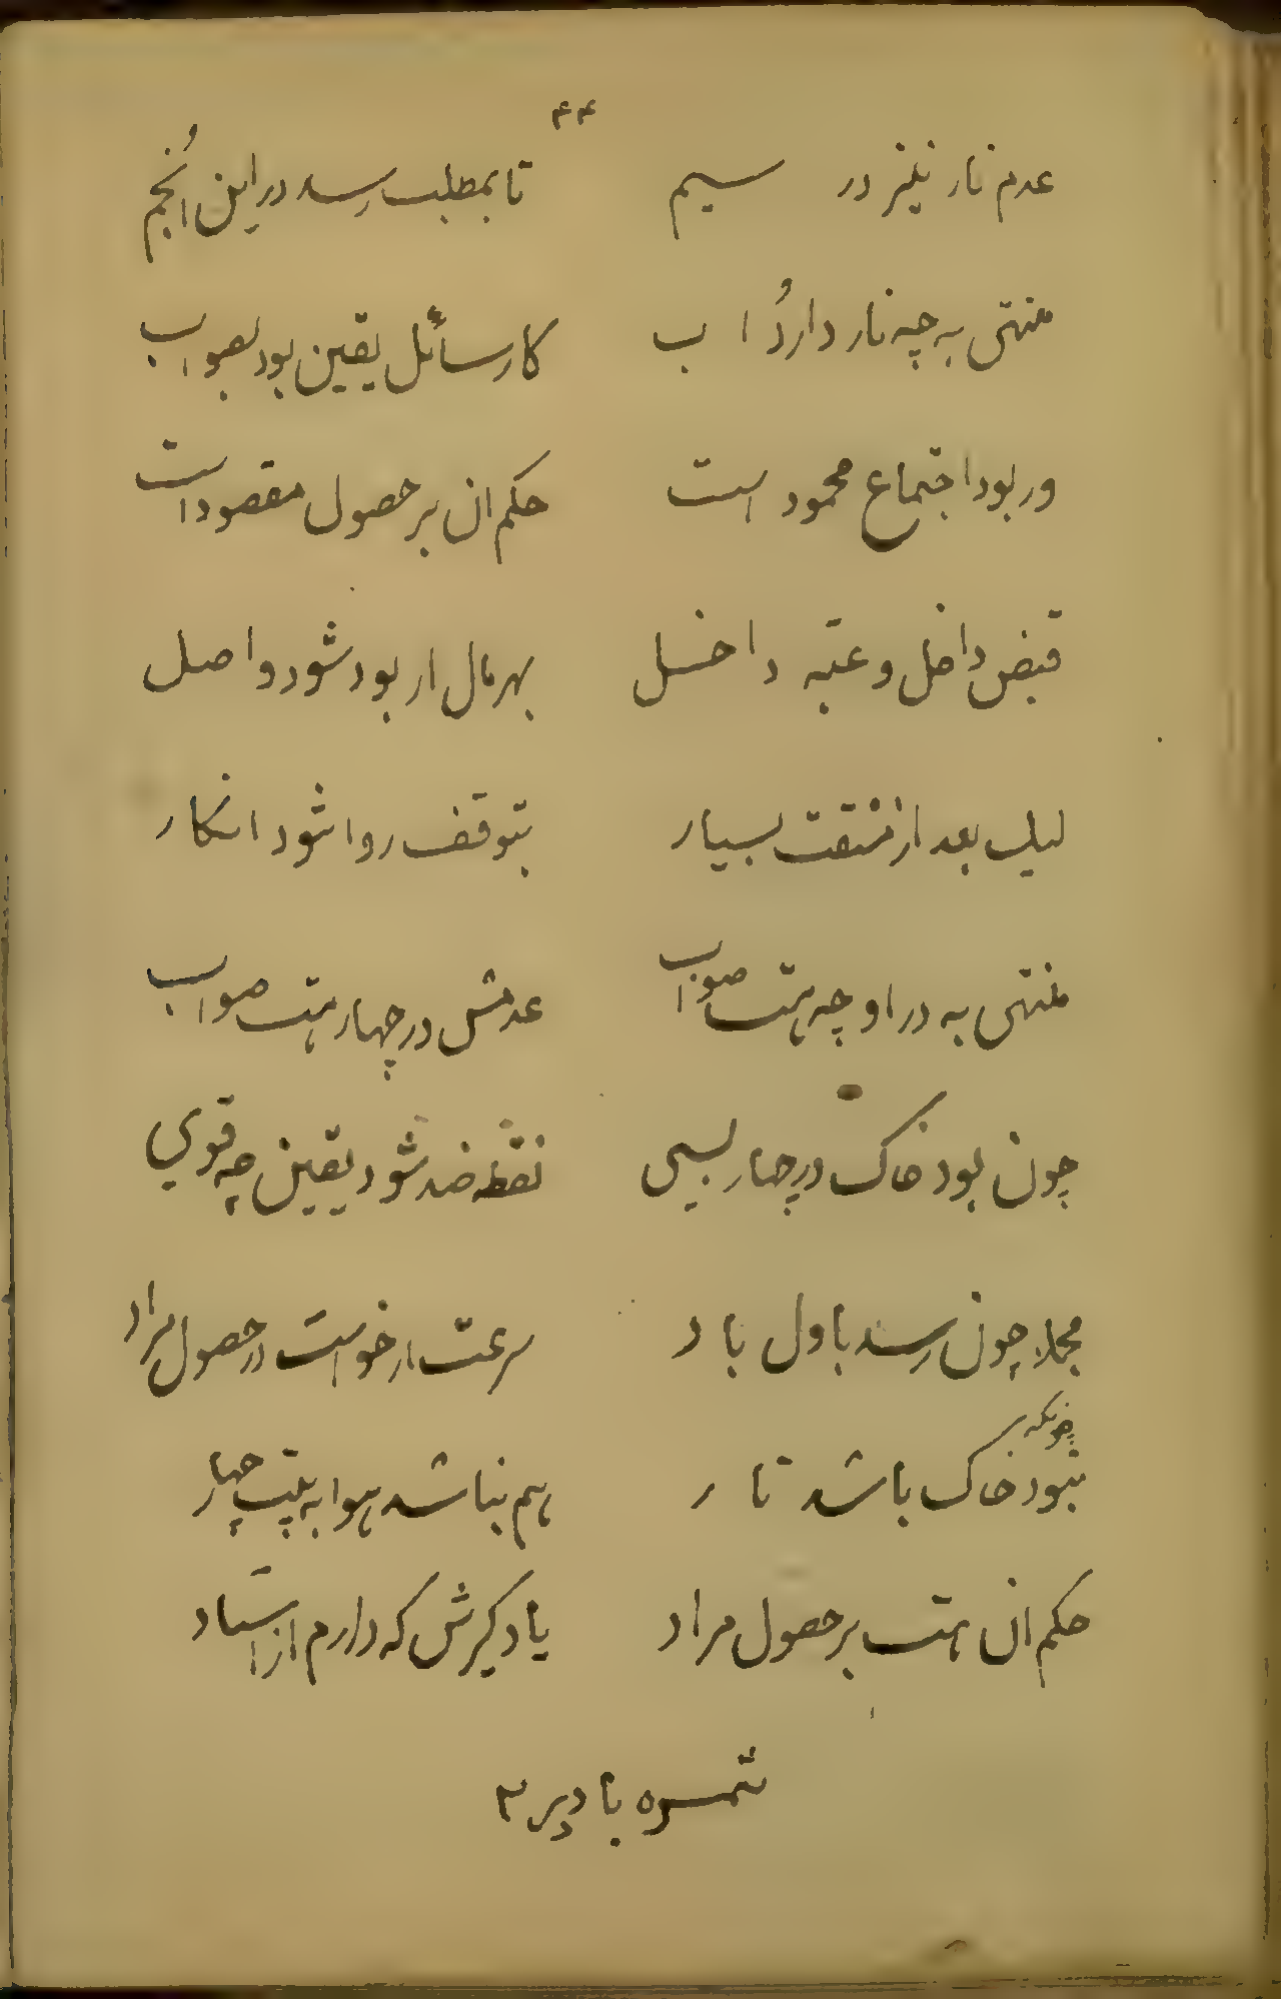 ۴۴
عدم نار نیز در سیم تا بمطلب رسد در این انجم
منتهی به چه نار دارد اب کار سائل یقین بود بصواب
ور بود اجتماع محمود است حکم ان بر حصول مقصود است
قبض داخل و عتبه داخل بهر مال ار بود شود واصل
لیک بعد از مشقت بسیار بتوقف روا شود انکار
منتهی به در او چه هست صواب عدمش در چهار هست صواب
چون بود خاک در چهار بسی نقطه ضد شود یقین چه قوی
مجملا چون رسد باول باد سرعت ار خواست در حصول مراد
چونکه
نبود خاک باشد نار هم نباشد هوا به بیت چهار
حکم ان هست بر حصول مراد یاد گیرش که دارم از استاد
ثمره باد پر ۲